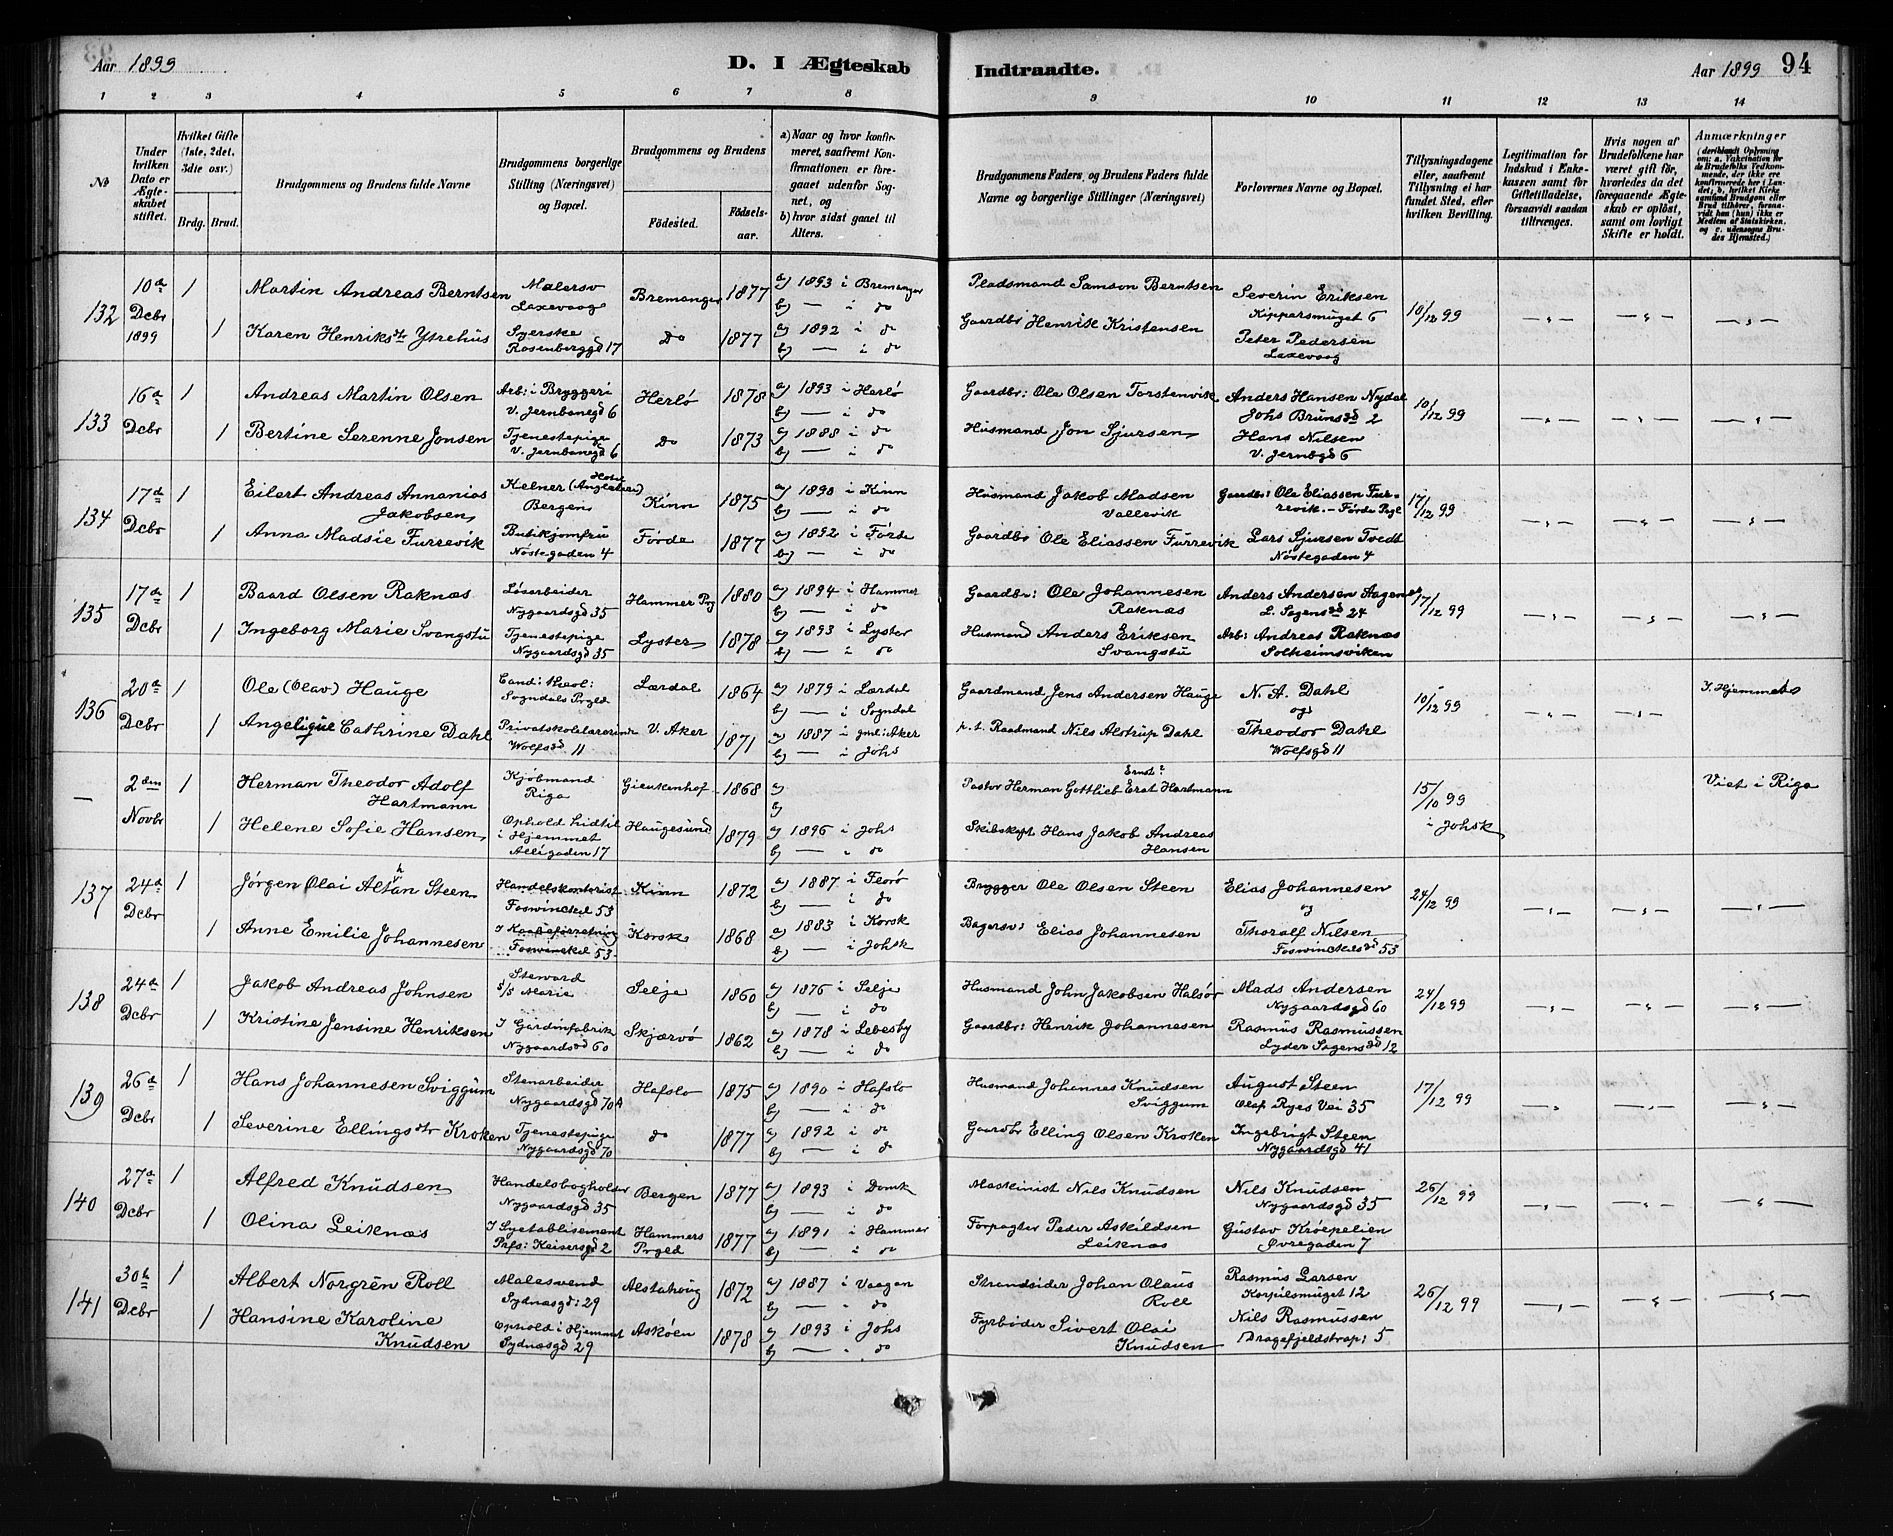 Aar 1899
D. I Ægteskab
Indtraadte.
Aar 1899 94
1 2 3 4 5 6 7 8 9 10 11 12 13 14
No
Under hvilken Dato er Ægteskabet stiftet.
Hvilket Gifte (1ste, 2det, 3die osv.)
Brdg. Brud.
Brudgommens og Brudens fulde Navne
Brudgommens borgerlige Stilling (Næringsvei) og Bopæl.
Brudgommens og Brudens
Fødested. Fødselsaar.
a) Naar og hvor konfirmeret, saafremt Konfirmationen er foregaaet udenfor Sognet, og
b) hvor sidst gaaet til Alters.
Brudgommens Faders og Brudens Faders fulde Navne og borgerlige Stillinger (Næringsvei)
Forlovernes Navne og Bopæl.
Tillysningsdagene eller, saafremt Tillysning ei har fundet Sted, efter hvilken Bevilling.
Legitimation for Indskud i Enkekassen samt for Giftetilladelse, forsaavidt saadan tiltrænges.
Hvis nogen af Brudefolkene har været gift før, hvorledes da det foregaaende Ægteskab er opløst, samt om lovligt Skifte er holdt.
Anmærkninger
132 10de Dcbr 1899 1 Martin Andreas Berntsen Malersv Laxevaag Bremanger 1877 a) 1893 i Bremanger b) — i do Pladsmand Samson Berntsen Severin Eriksen Kipparsmuget 6 10/12 99
1 Karen Henriksdtr Ytrehus Syerske Rosenberggd 17 Do 1877 a) 1892 i do b) — i do Gaardbr Henrik Kristensen Peter Pedersen Laxevaag
133 16de Dcbr 1 Andreas Martin Olsen Arb: i Bryggeri V. Jernbanegd 6 Herlø 1878 a) 1893 i Herlø b) — i do Gaardbr: Ole Olsen Torstensvik Anders Hansen Nydal Johs Brunsgd 2 10/12 99
1 Bertine Serenne Jonsen Tjenestepige V. Jernbanegd 6 Do 1873 a) 1888 i do b) — i do Husmand Jon Sjursen Hans Nilsen V. Jernbgd 6
134 17de Dcbr 1 Eilert Andreas Annanias Jakobsen Kelner (Hotel Angleterre) Bergen Kinn 1875 a) 1890 i Kinn b) — i do Husmand Jakob Madsen Vallevik Gaardbr: Ole Eliassen Furrevik - Førde Pgl 17/12 99
1 Anna Madsie Furrevik Butikjomfru Nöstegaden 4 Førde 1877 a) 1892 i Førde b) — i do Gaardbr Ole Eliassen Furrevik Lars Sjursen Tvedt Nöstegaden 4
135 17de Dcbr 1 Baard Olsen Raknæs Løsarbeider Nygaardsgd 35 Hammer Pg 1880 a) 1894 i Hammer b) — i do Gaardbr: Ole Johannesen Raknæs Anders Andersen Aagenes L. Sagensgd 24 17/12 99
1 Ingeborg Marie Svangstu Tjenestepige Nygaardsgd 35 Lyster 1878 a) 1893 i Lyster b) — i do Husmand Anders Eriksen Svangstu Arb: Andreas Raknæs Solheimsviken
136 20de Dcbr 1 Ole (Olav) Hauge Cand: theol: Sogndals Prgld Lærdal 1864 a) 1879 i Lærdal b) — i Sogndal Gaardmand Jens Andersen Hauge N. A. Dahl og 10/12 99 I Hjemmet
1 Angelique Cathrine Dahl Privatskolelærerinde Wolfsgd 11 V. Aker 1871 a) 1887 i gml: Aker b) — i Johs p. t. Raadmand Nils Alstrup Dahl Theodor Dahl Wolfsgd 11
— 2den Novbr 1 Herman Theodor Adolf Hartmann Kjøbmand Riga Gieukenhof 1868 a) b) Pastor Herman Gottlieb Erst Hartmann Ernst? 15/10 99 i Johsk Viet i Riga
1 Helene Sofie Hansen Ophold hidtil i Hjemmet Allégaden 17 Haugesund 1879 a) 1896 i Johs b) — i do Skibskapt Hans Jakob Andreas Hansen
137 24de Dcbr 1 Jørgen Olai Altan Steen Handelskontorist Foswinckel 53 Kinn 1872 a) 1887 i Florø b) — i do Brygger Ole Olsen Steen Elias Johannesen og 24/12 99
1 Anne Emilie Johannesen I Kaabeforretning Foswinckel 53 Korsk 1868 a) 1883 i Korsk b) — i Johsk Bagersv: Elias Johannesen Thoralf Nilsen Foswinckelsgd 53
138 24de Dcbr 1 Jakob Andreas Johnsen Steward S/S Marie Selje 1860 a) 1876 i Selje b) — i do Husmand John Jakobsen Halsør Mads Andersen Nygaardsgd 60 24/12 99
1 Kristine Jensine Henriksen I Gardinfabrik Nygaardsgd 60 Skjærvø 1862 a) 1878 i Lebesby b) — i do Gaardbr: Henrik Johannesen Rasmus Rasmussen Lyder Sagensgd 12
139 26de Dcbr 1 Hans Johannesen Sviggum Stenarbeider Nygaardsgd 70A Hafslo 1875 a) 1890 i Hafslo b) — i do Husmand Johannes Knudsen Sviggum August Steen Olaf Ryes Vei 35 17/12 99
1 Severine Ellingsdtr Kroken Tjenestepige Nygaardsgd 70 do 1877 a) 1892 i do b) — i do Gaardbr Elling Olsen Kroken Ingebrigt Steen Nygaardsgd 41
140 27de Dcbr 1 Alfred Knudsen Handelsbogholder Nygaardsgd 35 Bergen 1877 a) 1893 i Domk b) — i do Maskinist Nils Knudsen Nils Knudsen Nygaardsgd 35 26/12 99
1 Olina Leiknæs I Syetablisement Prfs: Keisersgd 2 Hammers Prgld 1877 a) 1891 i Hammer b) — i do Forpagter Peder Askildsen Leiknæs Gustav Krøepelien Øvregaden 7
141 30te Dcbr 1 Albert Norgrén Roll Malesvend Sydnæsgd: 29 Alstahoug 1872 a) 1887 i Vaagan b) — i do Strandsider Johan Olaus Roll Rasmus Larsen Korpilsmuget 12 26/12 99
1 Hansine Karoline Knudsen Ophold i Hjemmet Sydnæsgd 29 Askøen 1878 a) 1893 i Johs b) — i do Fyrbøder Sivert Olai Knudsen Nils Rasmussen Dragefjeldstrap: 5